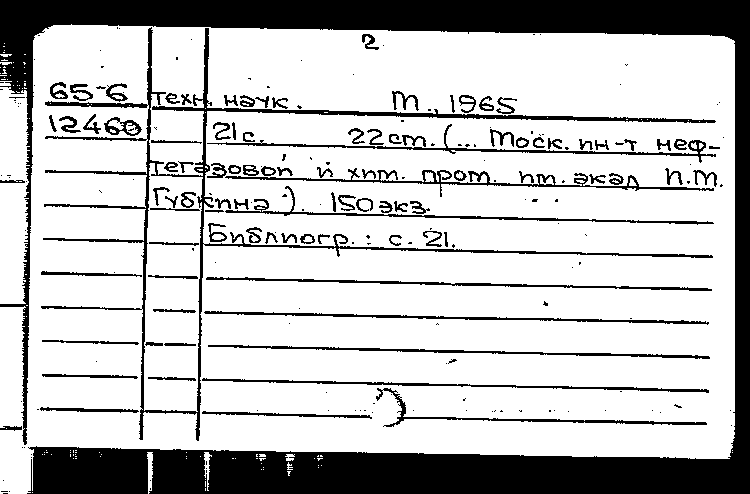 2
65-6 техн. наук. М., 1965
12460 21 с. 22 cm. (... Моск. ин-т неф-
тегазовой и хим. пром. им. акад И.М.
Губкина). 150 экз.
Библиогр.: с. 21.